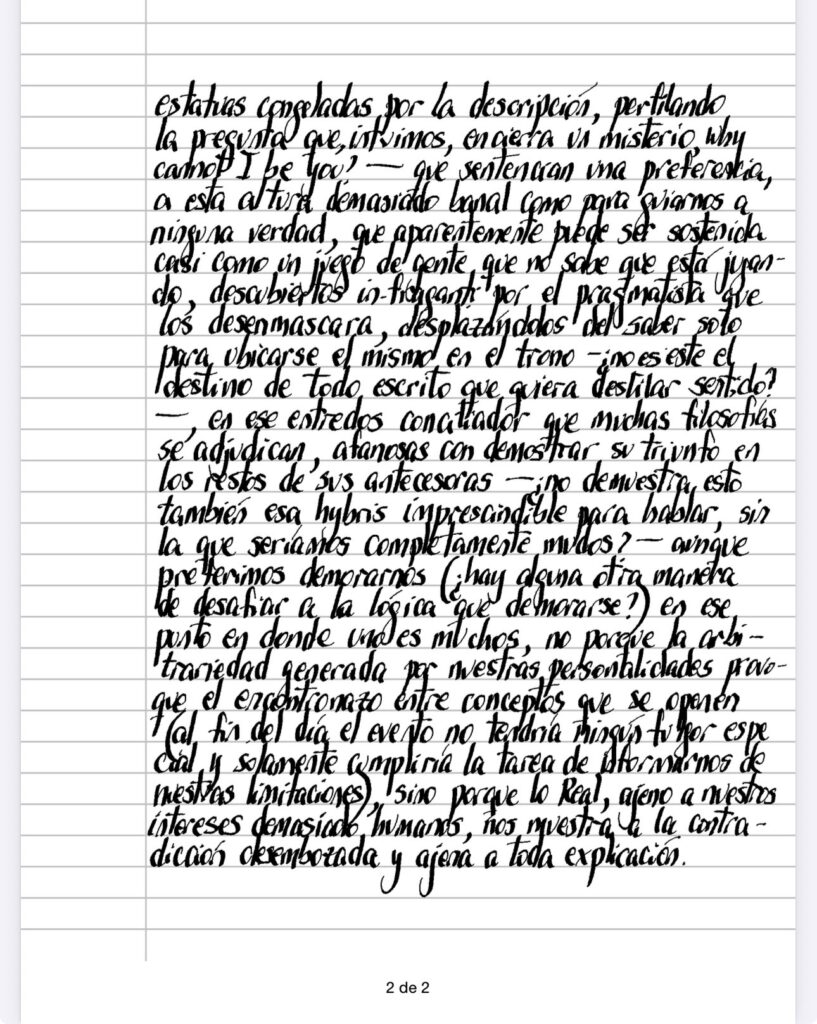 estatuas congeladas por la descripción, perfilando
la pregunta que, intuimos, encierra un misterio, why
cannot I be you? — que sentencian una preferencia,
a esta altura demasiado banal como para guiarnos a
ninguna verdad, que aparentemente puede ser sostenida
casi como un juego de gente que no sabe que está jugan-
do, descubiertos in-fraganti por el pragmatista que
los desenmascara, desplazándolos del saber solo
para ubicarse el mismo en el trono —¿no es este el
destino de todo escrito que quiera destilar sentido?
—, en ese entredos conciliador que muchas filosofías
se adjudican, afanosas con demostrar su triunfo en
los restos de sus antecesoras —¿no demuestra esto
también esa hybris imprescindible para hablar, sin
la que seríamos completamente mudos? — aunque
preferimos demorarnos (¿hay alguna otra manera
de desafiar a la lógica que demorarse?) en ese
punto en donde uno es muchos, no porque la arbi-
trariedad generada por nuestras personalidades provo-
que el encontronazo entre conceptos que se oponen
(al fin del día el evento no tendría ningún fulgor espe
cial y solamente cumpliría la tarea de informarnos de
nuestras limitaciones), sino porque lo Real, ajeno a nuestros
intereses demasiado humanos, nos muestra a la contra-
dicción desembozada y ajena a toda explicación.
2 de 2